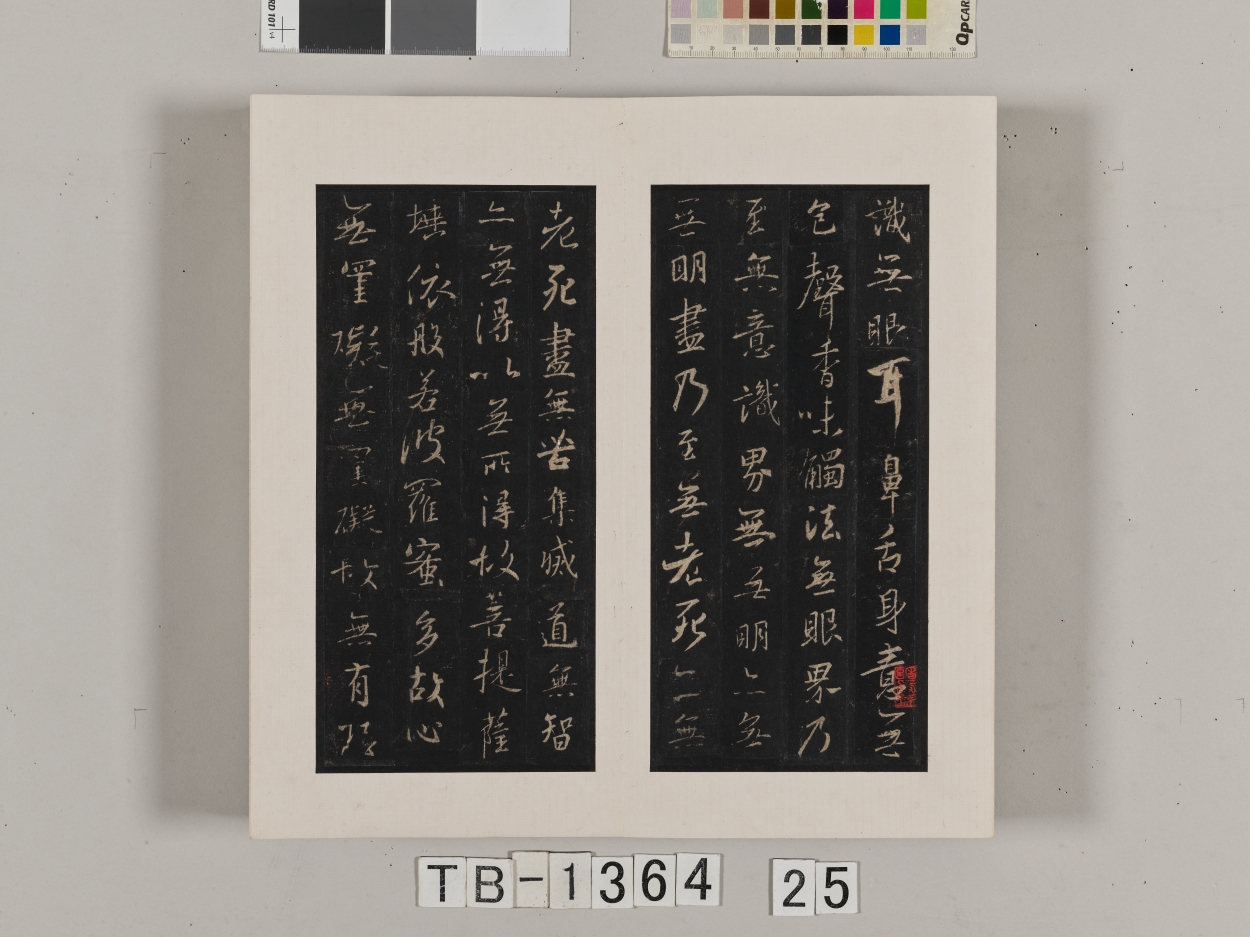 識無眼耳鼻舌身意無
色聲香味觸法無眼界乃
至無意識界無無明亦無
無明盡乃至無老死亦無
老死盡無苦集滅道無智
亦無得以無所得故菩提薩
埵依般若波羅蜜多故心
無罣礙無罣礙故無有恐
TB-1364 25
QPCARD 101 v4
QPCARD